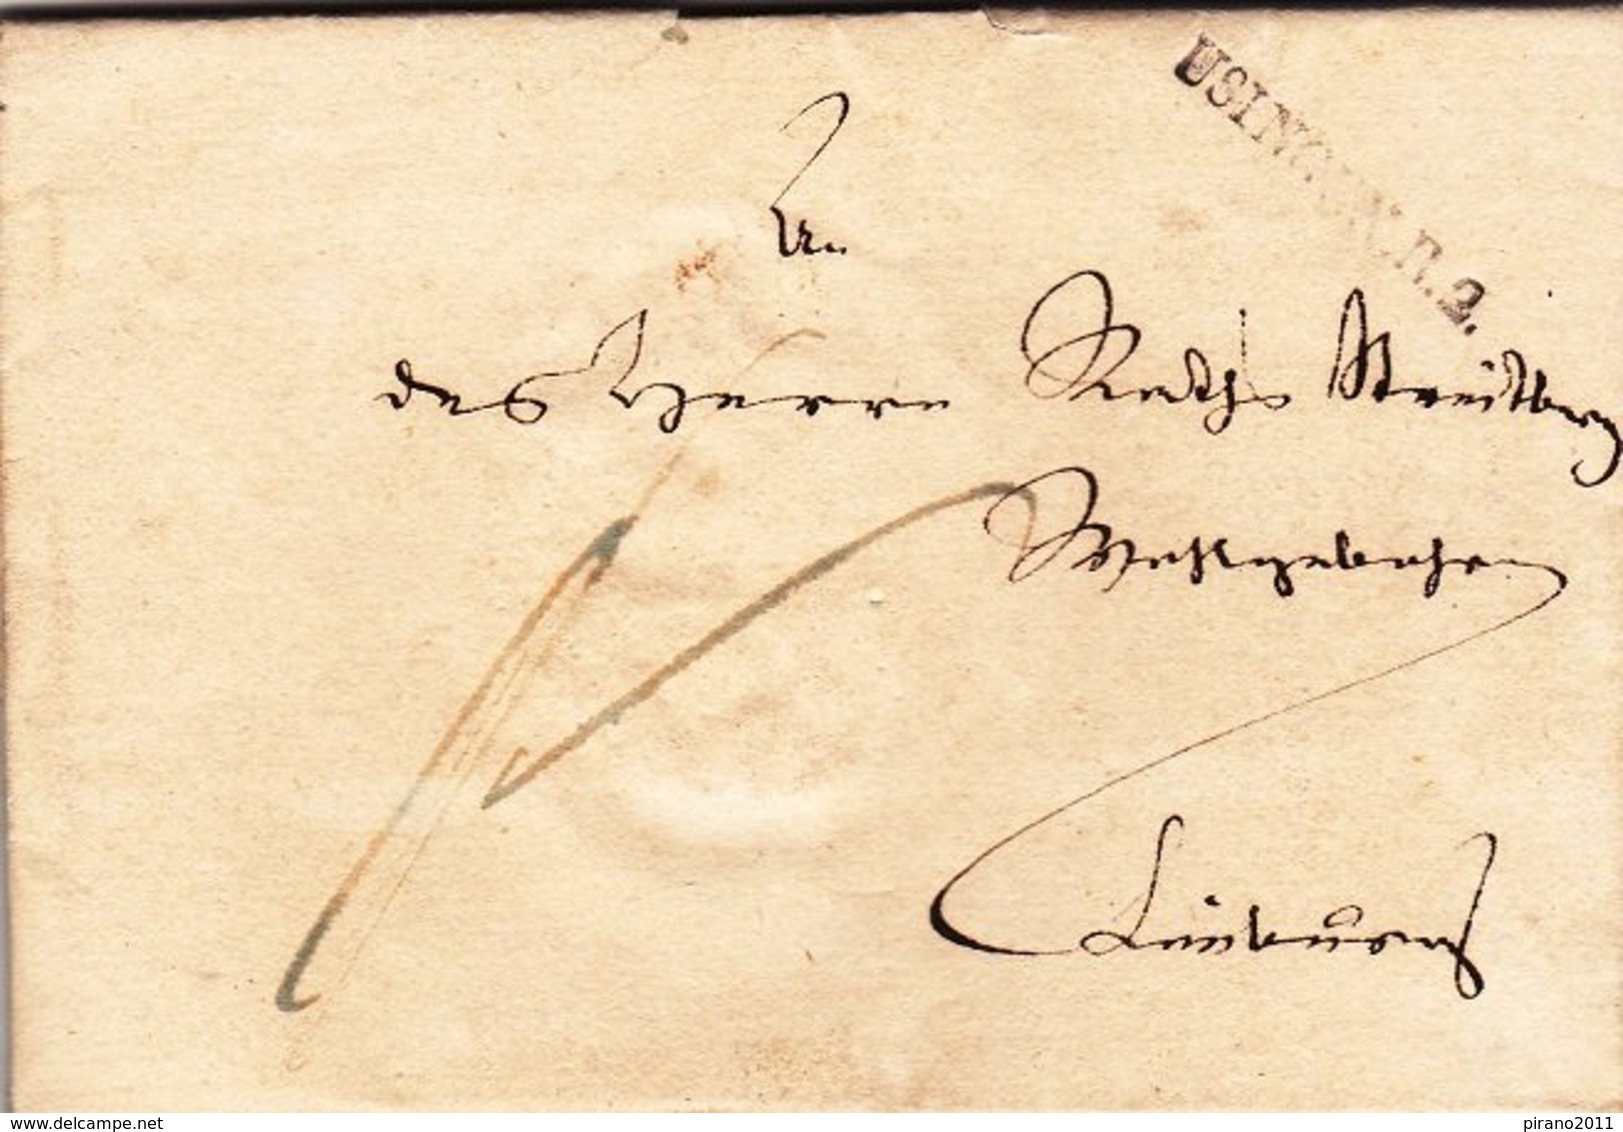 USINGEN.R.2.
An
des Herrn Raths Streitberg
Wohlgeboren
Limburg
www.delcampe.net
pirano2011